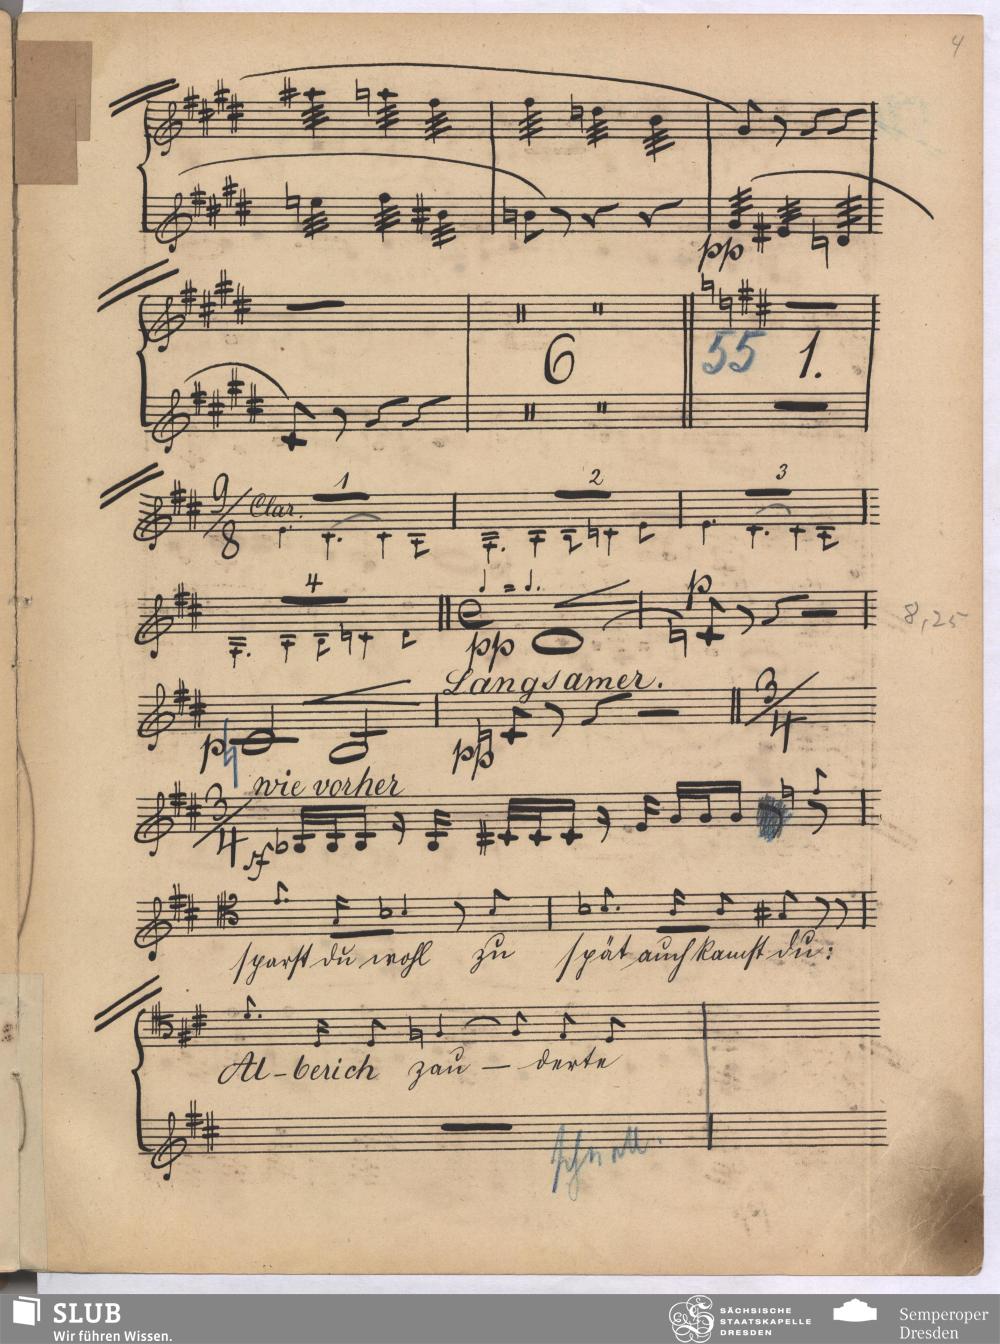 4
pp
6
55 1.
9/8 Clar. 1 2 3
4 p
pp
8,25
Langsamer.
p pp 3/4
wie vorher
3/4 sf
sparst du wohl zu spät auch kamst du:
Al-berich zau - derte
schnell.
SLUB
Wir führen Wissen.
SÄCHSISCHE
STAATSKAPELLE
DRESDEN
Semperoper
Dresden